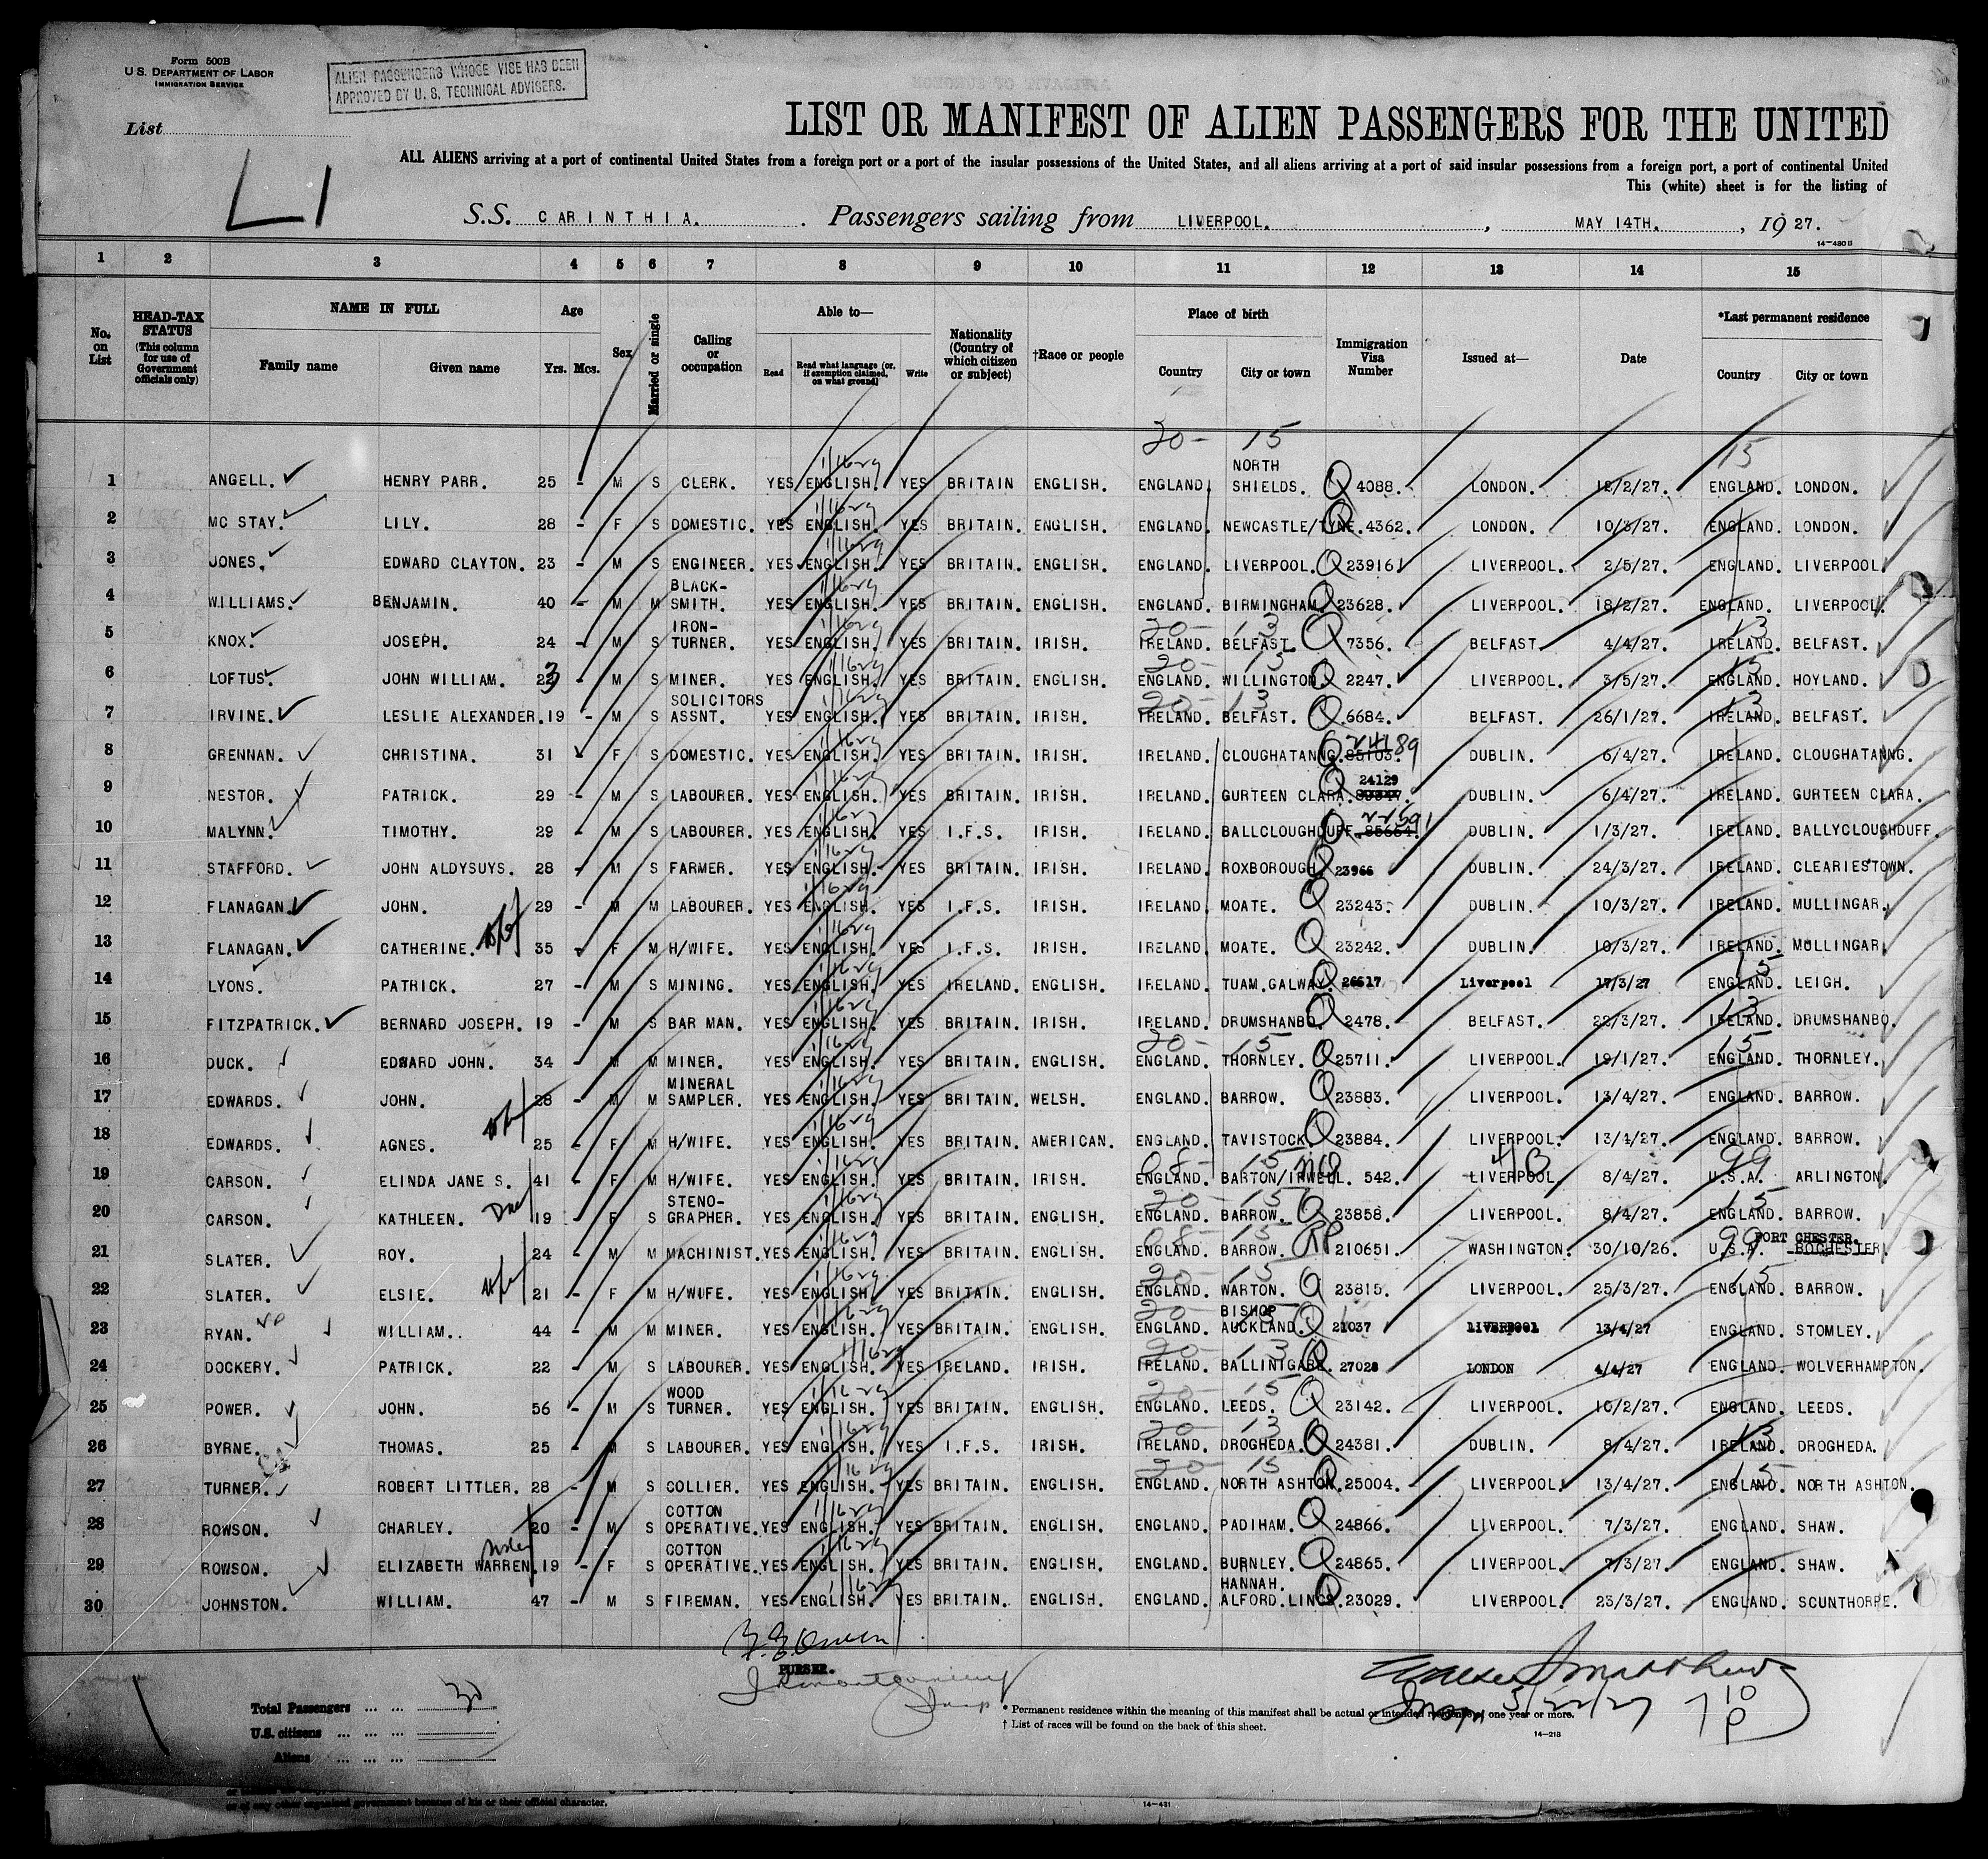 Form 500B
U.S. DEPARTMENT OF LABOR
IMMIGRATION SERVICE
ALIEN PASSENGERS WHOSE VISE HAS BEEN
APPROVED BY U. S. TECHNICAL ADVISERS.
List
LIST OR MANIFEST OF ALIEN PASSENGERS FOR THE UNITED
ALL ALIENS arriving at a port of continental United States from a foreign port or a port of the insular possessions of the United States, and all aliens arriving at a port of said insular possessions from a foreign port, a port of continental United
This (white) sheet is for the listing of
S.S. CARINTHIA. Passengers sailing from LIVERPOOL. , MAY 14TH. , 19 27.
14-430B
1 2 3 4 5 6 7 8 9 10 11 12 13 14 15
No. on List
HEAD-TAX STATUS (This column for use of Government officials only)
NAME IN FULL
Family name Given name
Age
Yrs. Mos.
Sex
Married or single
Calling or occupation
Able to—
Read Read what language (or, if exemption claimed, on what ground) Write
Nationality (Country of which citizen or subject)
†Race or people
Place of birth
Country City or town
Immigration Visa Number
Issued at—
Date
*Last permanent residence
Country City or town
20- 15 15
1 ANGELL. HENRY PARR. 25 - M S CLERK. YES ENGLISH. YES BRITAIN ENGLISH. ENGLAND. NORTH SHIELDS. Q 4088. LONDON. 12/2/27. ENGLAND. LONDON.
2 MC STAY. LILY. 28 - F S DOMESTIC. YES ENGLISH. YES BRITAIN. ENGLISH. ENGLAND. NEWCASTLE/TYNE. Q 4362. LONDON. 10/3/27. ENGLAND. LONDON.
3 JONES. EDWARD CLAYTON. 23 - M S ENGINEER. YES ENGLISH. YES BRITAIN. ENGLISH. ENGLAND. LIVERPOOL. Q 23916 LIVERPOOL. 2/5/27. ENGLAND. LIVERPOOL
4 WILLIAMS. BENJAMIN. 40 - M M BLACK-SMITH. YES ENGLISH. YES BRITAIN. ENGLISH. ENGLAND. BIRMINGHAM. Q 23628. LIVERPOOL. 18/2/27. ENGLAND. LIVERPOOL.
5 KNOX. JOSEPH. 24 - M S IRON-TURNER. YES ENGLISH. YES BRITAIN. IRISH. IRELAND. BELFAST. Q 7356. BELFAST. 4/4/27. IRELAND. BELFAST.
6 LOFTUS. JOHN WILLIAM. 23 - M S MINER. YES ENGLISH. YES BRITAIN. ENGLISH. ENGLAND. WILLINGTON. Q 2247. LIVERPOOL. 3/5/27. ENGLAND. HOYLAND.
7 IRVINE. LESLIE ALEXANDER. 19 - M S SOLICITORS ASSNT. YES ENGLISH. YES BRITAIN. IRISH. IRELAND. BELFAST. Q 6684. BELFAST. 26/1/27. IRELAND. BELFAST.
8 GRENNAN. CHRISTINA. 31 - F S DOMESTIC. YES ENGLISH. YES BRITAIN. IRISH. IRELAND. CLOUGHATANNG. Q 85103. 24189 DUBLIN. 6/4/27. IRELAND. CLOUGHATANNG.
9 NESTOR. PATRICK. 29 - M S LABOURER. YES ENGLISH. YES BRITAIN. IRISH. IRELAND. GURTEEN CLARA. Q 24129 DUBLIN. 6/4/27. IRELAND. GURTEEN CLARA.
10 MALYNN. TIMOTHY. 29 - M S LABOURER. YES ENGLISH. YES I.F.S. IRISH. IRELAND. BALLCLOUGHDUFF. Q 85654. DUBLIN. 1/3/27. IRELAND. BALLYCLOUGHDUFF.
11 STAFFORD. JOHN ALDYSUYS. 28 - M S FARMER. YES ENGLISH. YES BRITAIN. IRISH. IRELAND. ROXBOROUGH. Q 23966 DUBLIN. 24/3/27. IRELAND. CLEARIESTOWN.
12 FLANAGAN. JOHN. 29 - M M LABOURER. YES ENGLISH. YES I.F.S. IRISH. IRELAND. MOATE. Q 23243. DUBLIN. 10/3/27. IRELAND. MULLINGAR.
13 FLANAGAN. CATHERINE. wf 35 - F M H/WIFE. YES ENGLISH. YES I.F.S. IRISH. IRELAND. MOATE. Q 23242. DUBLIN. 10/3/27. IRELAND. MULLINGAR.
14 LYONS. PATRICK. 27 - M S MINING. YES ENGLISH. YES IRELAND. ENGLISH. IRELAND. TUAM.GALWAY. Q 26617 Liverpool 17/3/27 ENGLAND. LEIGH.
15 FITZPATRICK. BERNARD JOSEPH. 19 - M S BAR MAN. YES ENGLISH. YES BRITAIN. IRISH. IRELAND. DRUMSHANBO. Q 2478. BELFAST. 22/3/27. IRELAND. DRUMSHANBO.
16 DUCK. EDWARD JOHN. 34 - M M MINER. YES ENGLISH. YES BRITAIN. ENGLISH. ENGLAND. THORNLEY. Q 25711. LIVERPOOL. 19/1/27. ENGLAND. THORNLEY.
17 EDWARDS. JOHN. 28 - M M MINERAL SAMPLER. YES ENGLISH. YES BRITAIN. WELSH. ENGLAND. BARROW. Q 23883. LIVERPOOL. 13/4/27. ENGLAND. BARROW.
18 EDWARDS. AGNES. wf 25 - F M H/WIFE. YES ENGLISH. YES BRITAIN. AMERICAN. ENGLAND. TAVISTOCK. Q 23884. LIVERPOOL. 13/4/27. ENGLAND. BARROW.
19 CARSON. ELINDA JANE S. 41 - F M H/WIFE. YES ENGLISH. YES BRITAIN. IRISH. ENGLAND. BARTON/IRWELL. NQ 542. LIVERPOOL. 8/4/27. U.S.A. ARLINGTON.
20 CARSON. KATHLEEN. 19 - F S STENO-GRAPHER. YES ENGLISH. YES BRITAIN. ENGLISH. ENGLAND. BARROW. Q 23858. LIVERPOOL. 8/4/27. ENGLAND. BARROW.
21 SLATER. ROY. 24 - M M MACHINIST. YES ENGLISH. YES BRITAIN. ENGLISH. ENGLAND. BARROW. RP 210651. WASHINGTON. 30/10/26. U.S.A. PORT CHESTER. ROCHESTER.
22 SLATER. ELSIE. wf 21 - F M H/WIFE. YES ENGLISH. YES BRITAIN. ENGLISH. ENGLAND. WARTON. Q 23815. LIVERPOOL. 25/3/27. ENGLAND. BARROW.
23 RYAN. WILLIAM.. 44 - M M MINER. YES ENGLISH. YES BRITAIN. ENGLISH. ENGLAND. BISHOP AUCKLAND. Q 21037 LIVERPOOL 13/4/27 ENGLAND. STOMLEY.
24 DOCKERY. PATRICK. 22 - M S LABOURER. YES ENGLISH. YES IRELAND. IRISH. IRELAND. Q 27028 LONDON 4/4/27 ENGLAND. WOLVERHAMPTON.
25 POWER. JOHN. 56 - M S WOOD TURNER. YES ENGLISH. YES BRITAIN. ENGLISH. ENGLAND. LEEDS. Q 23142. LIVERPOOL. 10/2/27. ENGLAND. LEEDS.
26 BYRNE. THOMAS. 25 - M S LABOURER. YES ENGLISH. YES I.F.S. IRISH. IRELAND. DROGHEDA. Q 24381. DUBLIN. 8/4/27. IRELAND. DROGHEDA.
27 TURNER. ROBERT LITTLER. 28 - M S COLLIER. YES ENGLISH. YES BRITAIN. ENGLISH. ENGLAND. NORTH ASHTON. Q 25004. LIVERPOOL. 13/4/27. ENGLAND. NORTH ASHTON.
28 ROWSON. CHARLEY. 20 - M S COTTON OPERATIVE. YES ENGLISH. YES BRITAIN. ENGLISH. ENGLAND. PADIHAM. Q 24866. LIVERPOOL. 7/3/27. ENGLAND. SHAW.
29 ROWSON. ELIZABETH WARREN. sister 19 - F S COTTON OPERATIVE. YES ENGLISH. YES BRITAIN. ENGLISH. ENGLAND. BURNLEY. Q 24865. LIVERPOOL. 7/3/27. ENGLAND. SHAW.
30 JOHNSTON. WILLIAM. 47 - M S FIREMAN. YES ENGLISH. YES BRITAIN. ENGLISH. ENGLAND. HANNAH. ALFORD.LINCS. Q 23029. LIVERPOOL. 23/3/27. ENGLAND. SCUNTHORPE.
PURSER.
Total Passengers ... ... 30
U.S. citizens ... ... ...
Aliens ... ... ...
* Permanent residence within the meaning of this manifest shall be actual or intended residence of one year or more.
† List of races will be found on the back of this sheet.
14-218
Insp 5/22/27 7 10 P
or of any other organized government because of his or their official character.
14-431